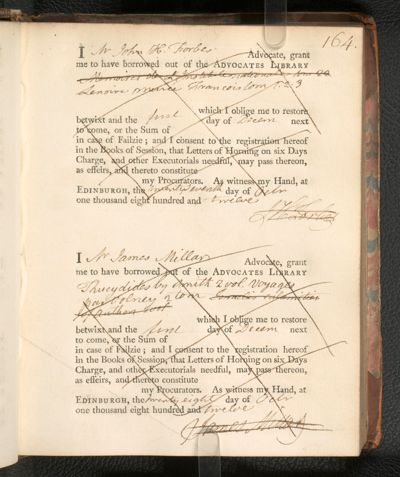 164.
I Mr John H. Forbes Advocate, grant
me to have borrowed out of the ADVOCATES LIBRARY
Lenoire Francois tom 1. 2. 3
which I oblige me to restore
betwixt and the first day of Decem next
to come, or the Sum of
in case of Failzie; and I consent to the registration hereof
in the Books of Session, that Letters of Horning on six Days
Charge, and other Executorials needful, may pass thereon,
as effeirs, and thereto constitute
my Procurators. As witness my Hand, at
EDINBURGH, the twenty Seventh day of Octr
one thousand eight hundred and twelve
I Mr James Millar Advocate, grant
me to have borrowed out of the ADVOCATES LIBRARY
Thucydides by Smith 2 vol. Voyages
par 2 tom
which I oblige me to restore
betwixt and the first day of Decem next
to come, or the Sum of
in case of Failzie; and I consent to the registration hereof
in the Books of Session, that Letters of Horning on six Days
Charge, and other Executorials needful, may pass thereon,
as effeirs, and thereto constitute
my Procurators. As witness my Hand, at
EDINBURGH, the twenty eight day of Octr
one thousand eight hundred and twelve
James Millar